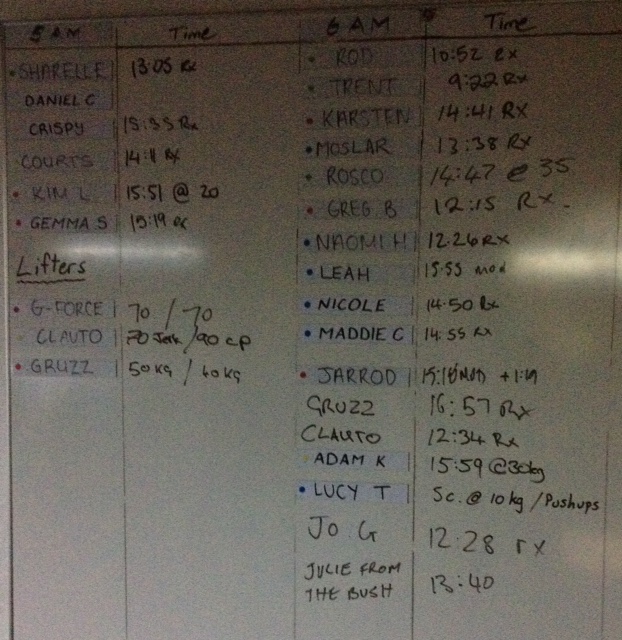 5 AM Time
SHARELLE 13:05 Rx
DANIEL C
CRISPY 15:35 Rx
COURTS 14:11 Rx
KIM L 15:51 @ 20
GEMMA S 15:19 Rx
Lifters
G-FORCE 70 / 70
CLAUTO 70 Jerk / 90 CP
GRUZZ 50 KG / 40 KG
6 AM Time
ROD 10:52 Rx
TRENT 9:22 Rx
KARSTEN 14:41 RX
MOSLAR 13:38 Rx
ROSCO 14:47 @ 35
GREG B 12:15 Rx
NAOMI H 12.26 RX
LEAH 15:55 mod
NICOLE 14.50 Rx
MADDIE C 14:55 Rx
JARROD MOD
GRUZZ 16:57 Rx
CLAUTO 12:34 Rx
ADAM K 15:59 @30kg
LUCY T Sc. @ 10 kg / Pushups
JO G 12:28 rx
JULIE FROM
THE BUSH 13:40